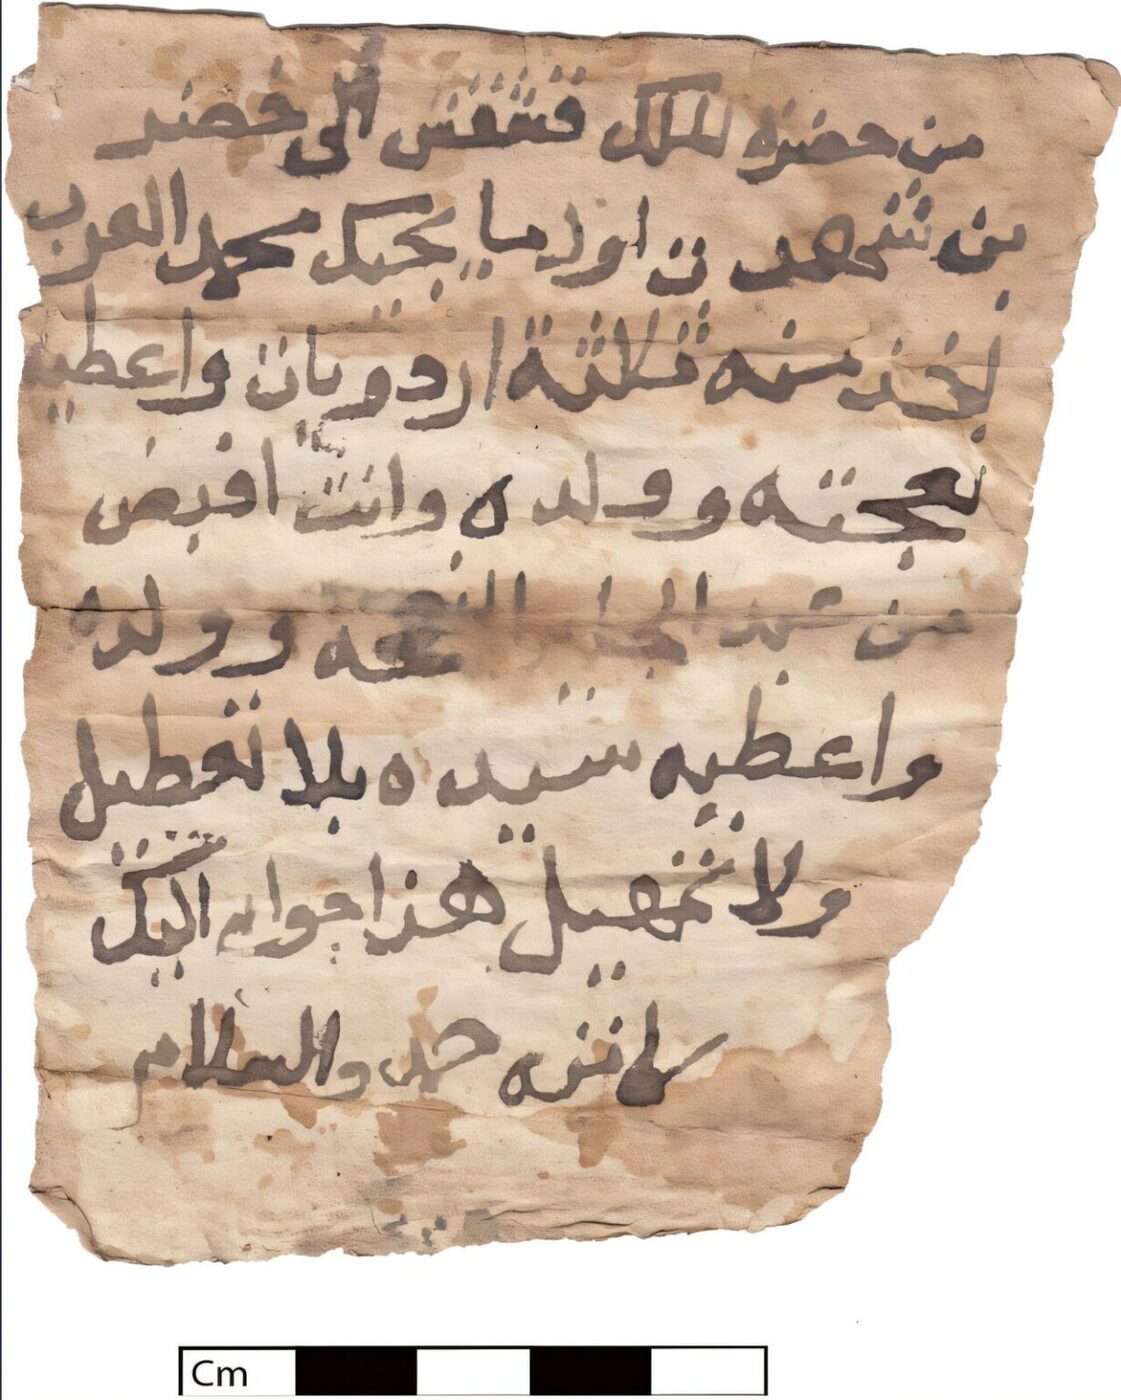 من حضره الملك قشقش الى خضر
بن شهدت اول ما يجيك محمد العرب
لخذ منه ثلاثة اردويات واعطيه
نعجته وولده وانت اقبض
من عبد الجابر النعجه وولده
واعطيه سيده بلا تعطيل
ولا تمهيل هذا جواب اليك
لا تزه حد والسلام
Cm